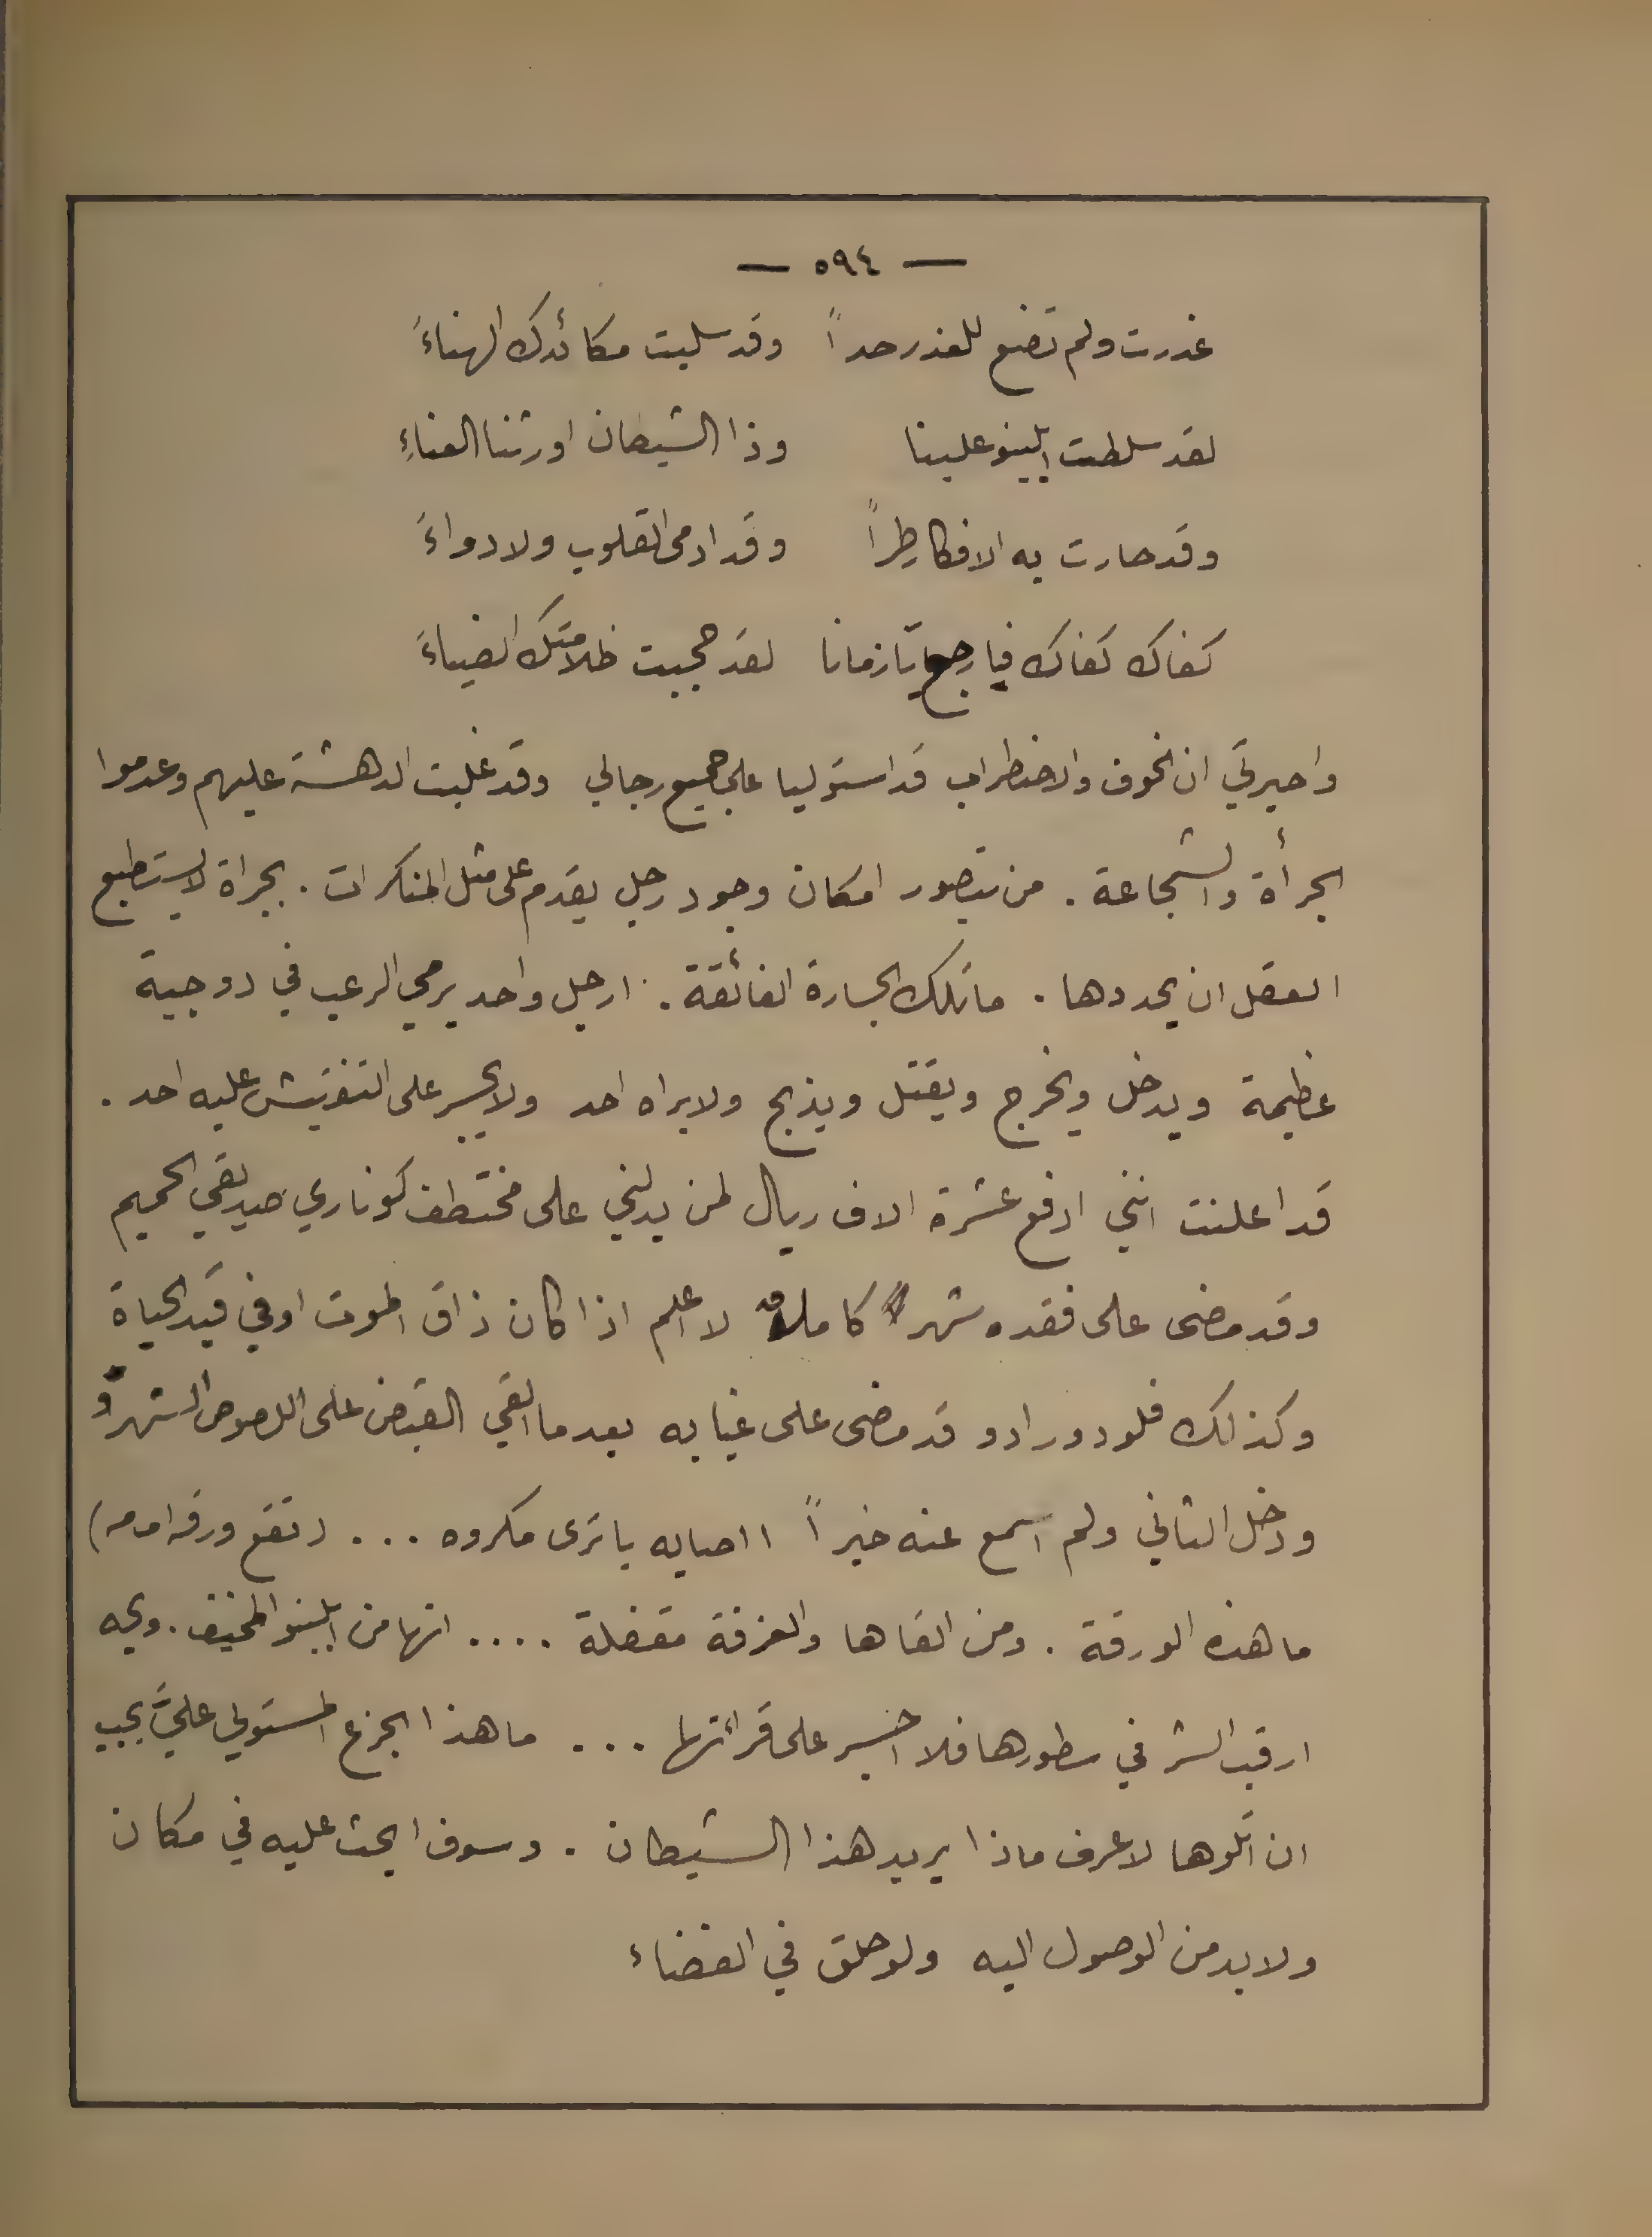 — ٥٩٤ —
غدرت ولم تضع للغدر حداً وقد سلبت مكائدك الهناءَ
لقد سلطت ابلينو علينا وذا الشيطان اورثنا العناءِ
وقد حارت به الافكار طراً وقد ادمى القلوب ولا دواءَ
كفاك كفاك فيا رجع يا زمانا لقد حجبت ظلامتك الضياءَ
واحيرتي ان الخوف والاضطراب قد استوليا على جميع رجالي وقد غلبت الدهشة عليهم وعدموا
الجرأة والشجاعة . من يتصور امكان وجود رجل يقدم على مثل المنكرات . بجراة لا يستطيع
العقل ان يحددها . ما تلك الجسارة الفائقة . ارجل واحد يرمي الرعب في دوجية
عظيمة ويدخل ويخرج ويقتل ويذبح ولا يراه احد ولا يجسر على التفتيش عليه احد .
قد اعلنت انني ادفع عشرة الاف ريال لمن يدلني على مختطف كوناري صديقي الحميم
وقد مضى على فقده شهر كامل لا اعلم اذا كان ذاق الموت او في قيد الحياة
وكذلك فلودورادو قد مضى على غيابه بعد ما القي القبض على اللصوص الشهر
ودخل الثاني ولم اسمع عنه خبراً ااصابه يا ترى مكروه ... (تقع ورقه امامه)
ما هذه الورقة . ومن القاها والغرفة مقفلة .... انها من ابلينو المخيف . ويحه
ارقب الشر في سطورها فلا اجسر على قرائتها ... ما هذا الجزع المستولي عليَّ يجب
ان اتلوها لاعرف ماذا يريد هذا الشيطان . وسوف ابحث عليه في مكان
ولا بد من الوصول اليه ولو حلق في الفضاء